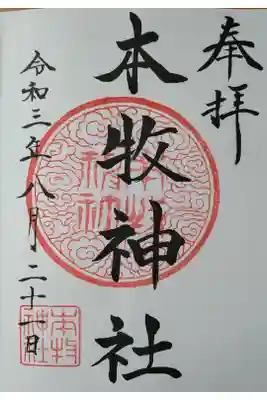 奉拝
本牧神社
令和三年八月二十一日
本牧
神社
本牧
神社